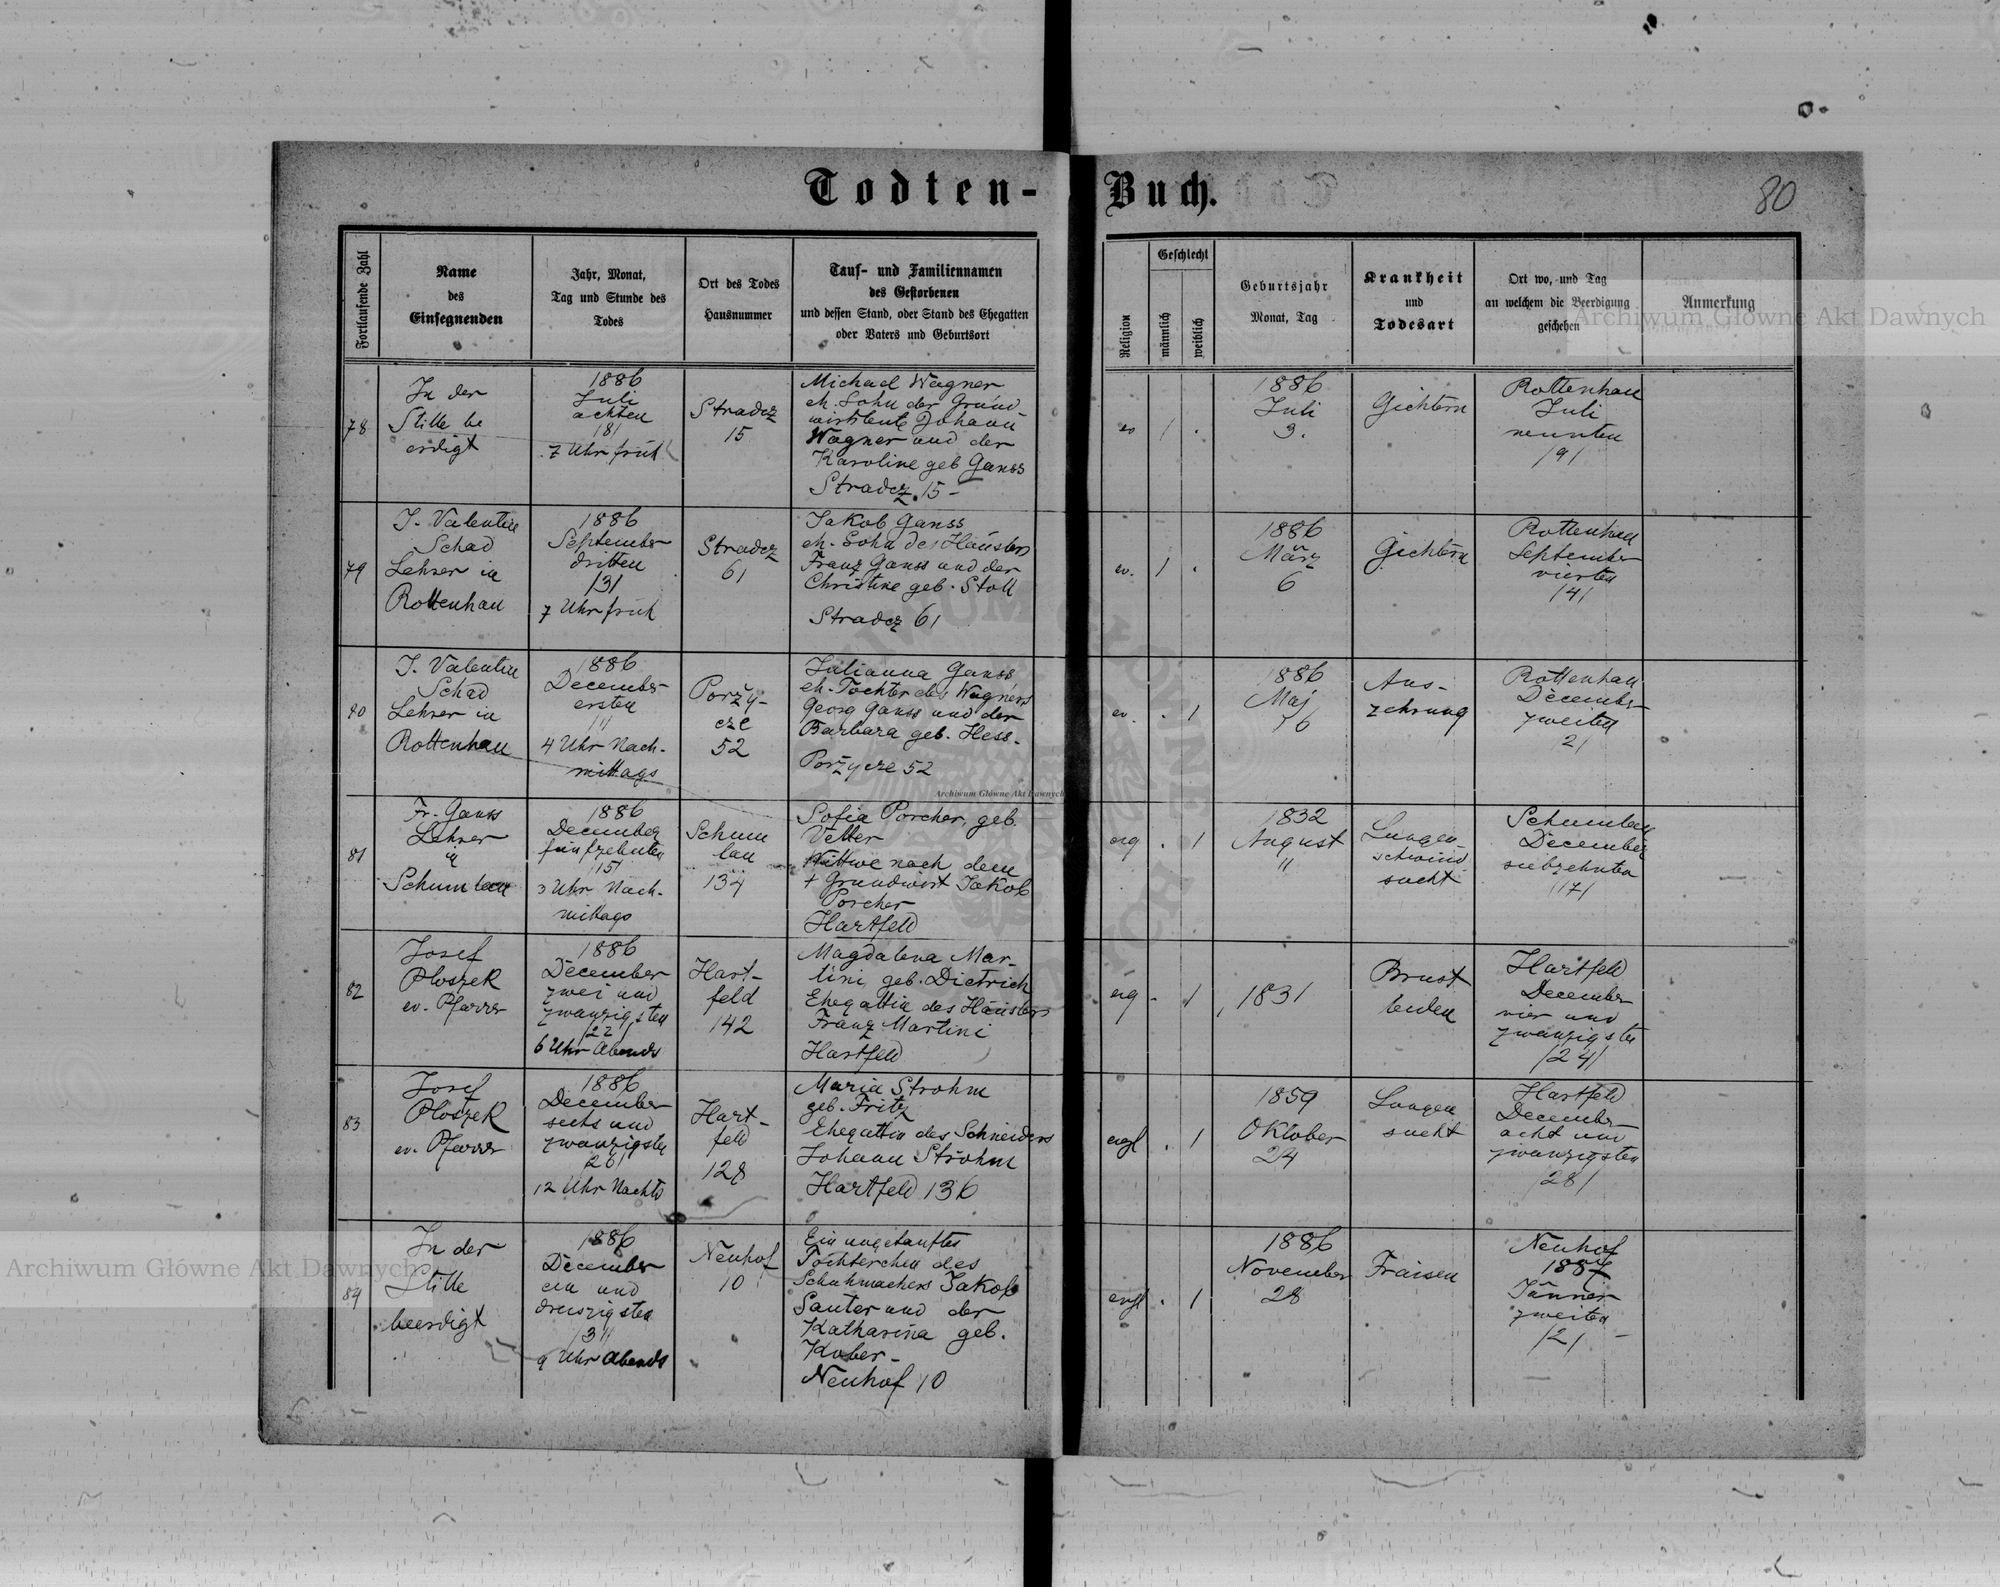 Todten-Buch.
80
Fortlaufende Zahl
Name
des
Einsegnenden
Jahr, Monat,
Tag und Stunde des
Todes
Ort des Todes
Hausnummer
Tauf- und Familiennamen
des Gestorbenen
und dessen Stand, oder Stand des Ehegatten
oder Vaters und Geburtsort
Religion
Geschlecht
männlich
weiblich
Geburtsjahr
Monat, Tag
Krankheit
und
Todesart
Ort wo, und Tag
an welchem die Beerdigung
geschehen
Anmerkung
78
In der
Stille be
erdigt
1886
Juli
achten
/8/
7 Uhr früh
Stradcz
15
Michael Wagner
eh. Sohn der Grund-
wirtsleute Johann
Wagner und der
Karoline geb Ganss
Stradcz 15 -
ev
/
.
1886
Juli
3.
Gichtern
Rottenhan
Juli
neunten
/9/
79
J. Valentin
Schad
Lehrer in
Rottenhan
1886
September
dritten
/3/
7 Uhr früh
Stradcz
61
Jakob Ganss
eh. Sohn des Häuslers
Franz Ganss und der
Christine geb. Stoll
Stradcz 61
ev.
/
.
1886
März
6
Gichtern
Rottenhan
September
vierten
/4/
80
J. Valentin
Schad
Lehrer in
Rottenhan
1886
December
ersten
/1/
4 Uhr Nach-
mittags
Poržy-
cze
52
Julianna Ganss
eh. Tochter des Wagners
Georg Ganss und der
Barbara geb. Hess-
Poržycze 52
ev.
.
/
1886
Maj
16
Aus-
zehrung
Rottenhan
December
zweiten
/2/
81
Fr. Ganss
Lehrer
in
Schumlau
1886
December
fünfzehnten
/15/
3 Uhr Nach-
mittags
Schum
lau
134
Sofia Porcher, geb.
Vetter
Wittwe nach dem
+ Grundwirt Jakob
Porcher
Hartfeld
.
/
1832
August
"
Lungen-
schwind
sucht
Schumlau
December
siebzehnten
/17/
82
Josef
Ploszek
ev. Pfarrer
1886
December
zwei und
zwanzigsten
/22/
6 Uhr Abends
Hart-
feld
142
Magdalena Mar-
tini, geb. Dietrich
Ehegattin des Häuslers
Franz Martini
Hartfeld
-
/
1831
Brust
leiden
Hartfeld
December
vier und
zwanzigsten
/24/
83
Josef
Ploszek
ev. Pfarrer
1886
December
sechs und
zwanzigsten
/26/
12 Uhr Nachts
Hart-
feld
128
Maria Strohm
geb. Fritz
Ehegattin des Schneiders
Johann Strohm
Hartfeld 136
evgl
.
/
1859
Oktober
24
Lungen
sucht
Hartfeld
December
acht und
zwanzigsten
/28/
84
In der
Stille
beerdigt
1886
December
ein und
dreiszigsten
/31/
9 Uhr Abends
Neuhof
10
Ein ungetauftes
Töchterchen des
Schuhmachers Jakob
Sauter und der
Katharina geb.
Kober-
Neuhof 10
evgl
.
/
1886
November
28
Fraisen
Neuhof
1887
Jänner
zweiten
/2/
Archiwum Główne Akt Dawnych
Archiwum Główne Akt Dawnych
Archiwum Główne Akt Dawnych